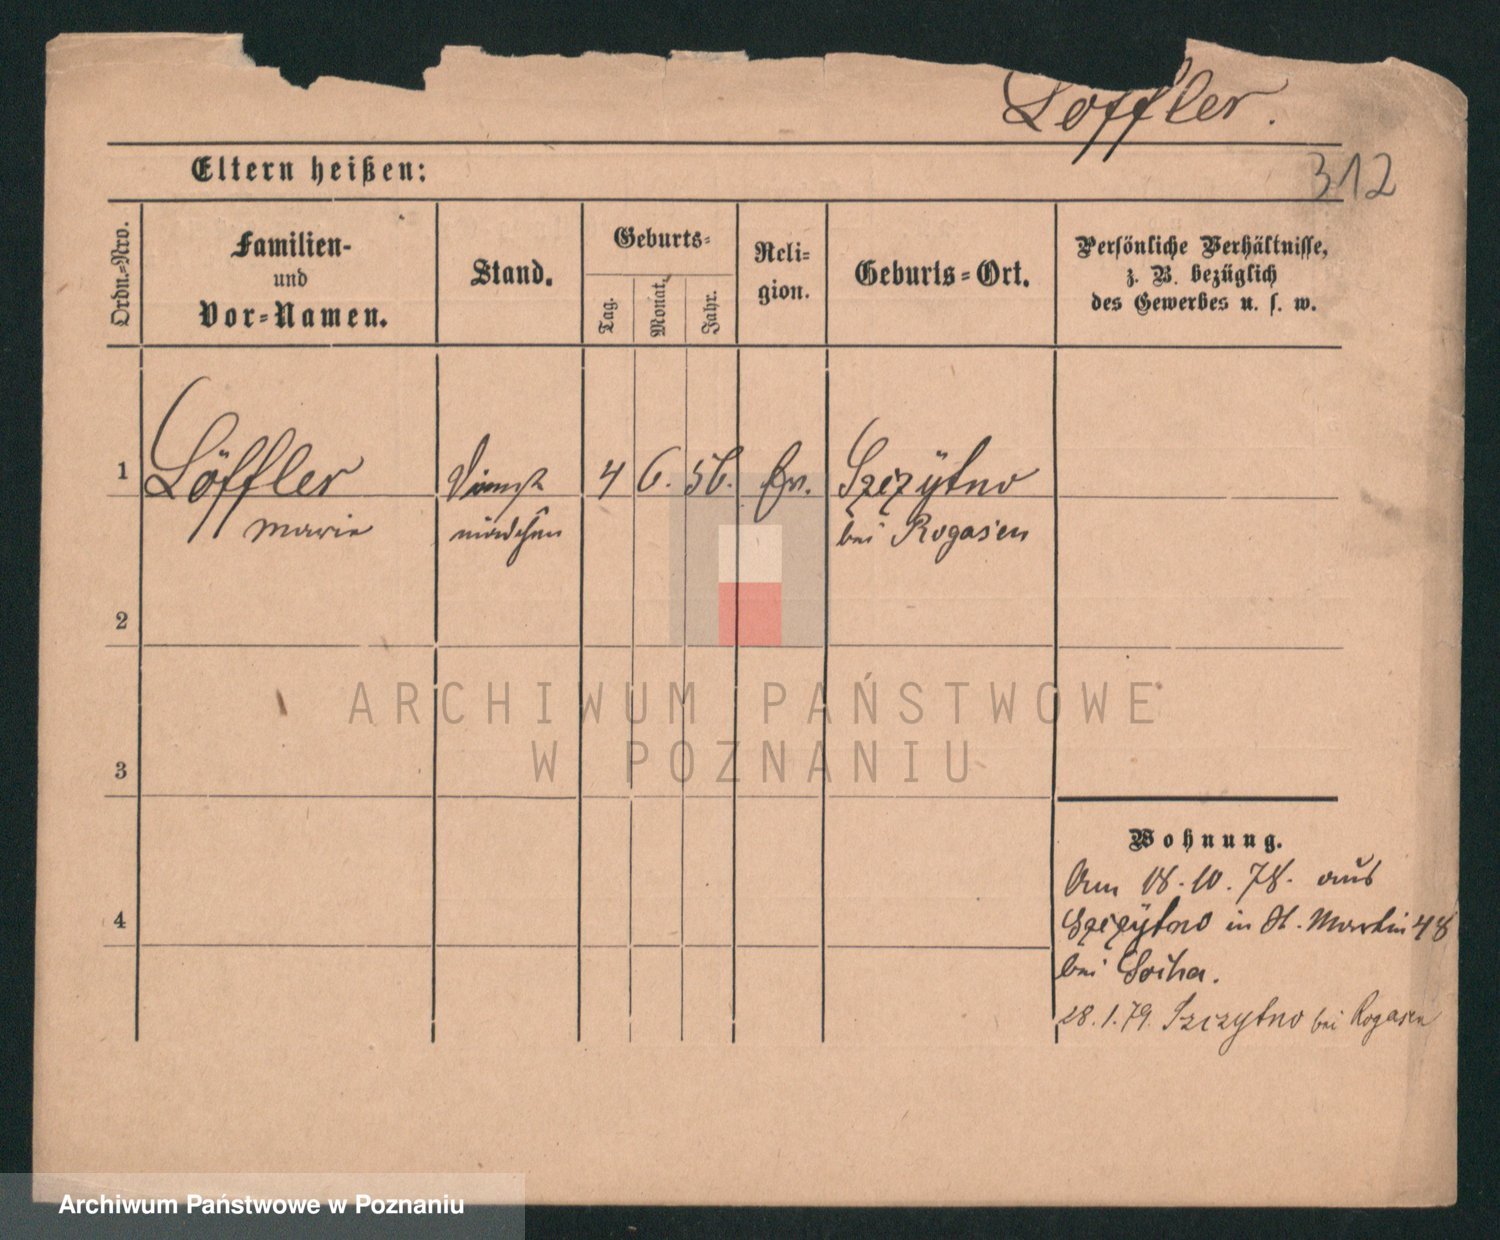 Löffler.
312
Eltern heißen:
Ordn.=Nro.
Familien-
und
Vor=Namen.
Stand.
Geburts=
Tag.
Monat.
Jahr.
Reli=
gion.
Geburts=Ort.
Persönliche Verhältnisse,
z. B. bezüglich
des Gewerbes u. s. w.
1
Löffler
Marie
Dienst
mädchen
4
6.
56.
Ev.
Szczÿtno
bei Rogasen
2
ARCHIWUM PAŃSTWOWE
W POZNANIU
3
Wohnung.
Am 18.10.78. aus
Szczÿtno in St. Martin 48
bei
28.1.79. Szczytno bei Rogasen
4
Archiwum Państwowe w Poznaniu